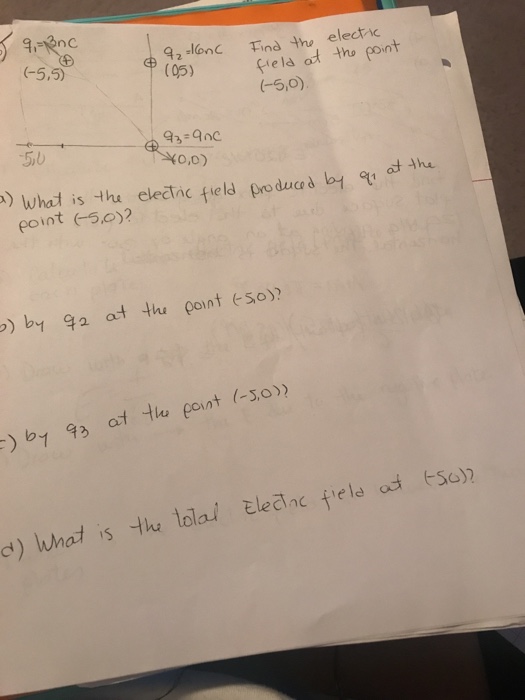 q₂=16nC
(0,5)
Find the electric
field at the point
(-5,0).
(-5,5)
q₃=9nC
(0,0)
-5,0
a) What is the electric field produced by q₁ at the
point (-5,0)?
b) by q₂ at the point (-5,0)?
c) by q₃ at the point (-5,0)?
d) What is the total Electric field at (-5,0)?